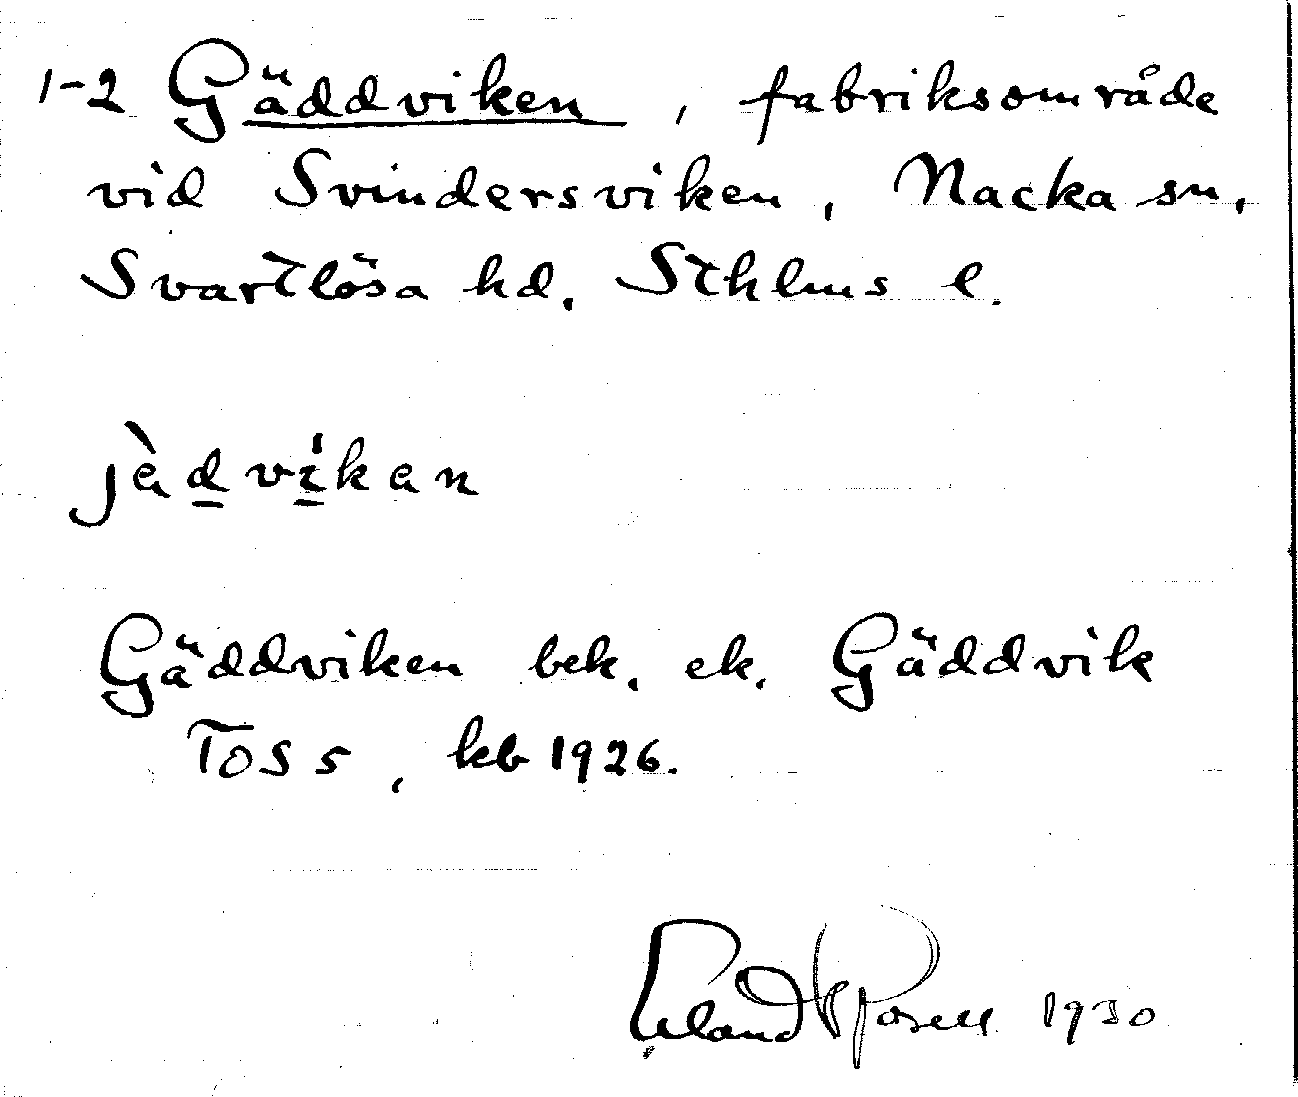 1-2 Gäddviken, fabriksområde
vid Svindersviken, Nacka sn,
Svartlösa hd, Sthlms l.
jàdvikan
Gäddviken bek. ek. Gäddvik
Toss, kb 1926.
Erland Rosell 1930